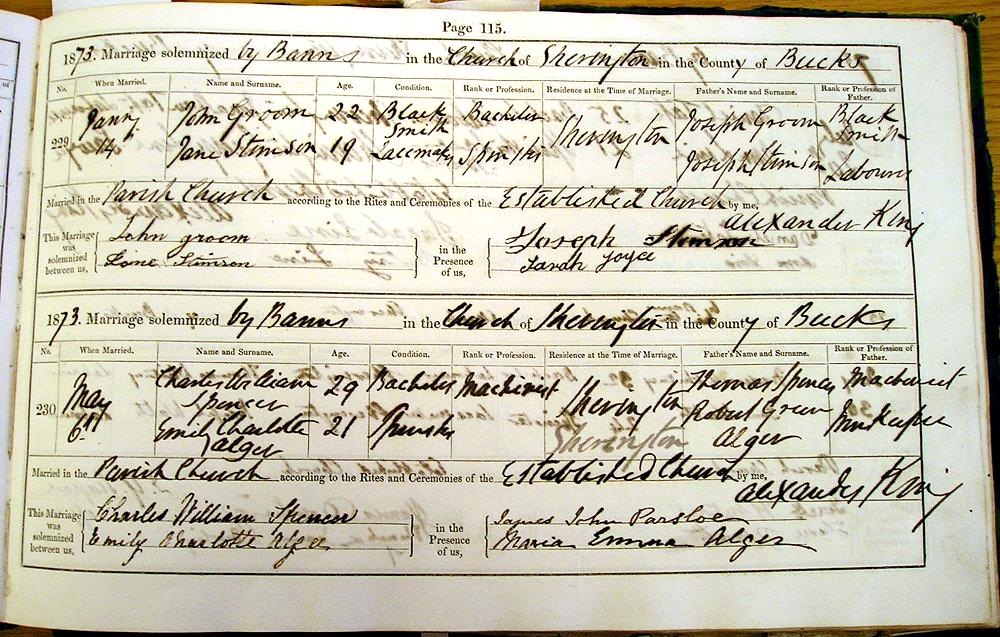 Page 115.
1873. Marriage solemnized by Banns in the Church of Sherington in the County of Bucks
No. When Married. Name and Surname. Age. Condition. Rank or Profession. Residence at the Time of Marriage. Father's Name and Surname. Rank or Profession of Father.
229 Jany 14th John Groom 22 Black Smith Bachelor Sherington Joseph Groom Black Smith
Jane Stimson 19 Lacemaker Spinster Joseph Stimson Labourer
Married in the Parish Church according to the Rites and Ceremonies of the Established Church by me,
Alexander King
This Marriage was solemnized between us, John groom in the Presence of us, Joseph Stimson
Jane Stimson Sarah Joyce
1873. Marriage solemnized by Banns in the Church of Sherington in the County of Bucks
No. When Married. Name and Surname. Age. Condition. Rank or Profession. Residence at the Time of Marriage. Father's Name and Surname. Rank or Profession of Father.
230 May 6th Charles William Spencer 29 Bachelor Machinist Sherington Thomas Spencer Machinist
Emily Charlotte Alger 21 Spinster Sherington Robert Green Alger Innkeeper
Married in the Parish Church according to the Rites and Ceremonies of the Established Church by me,
Alexander King
This Marriage was solemnized between us, Charles William Spencer in the Presence of us, James John Parsloe
Emily Charlotte Alger Maria Emma Alger